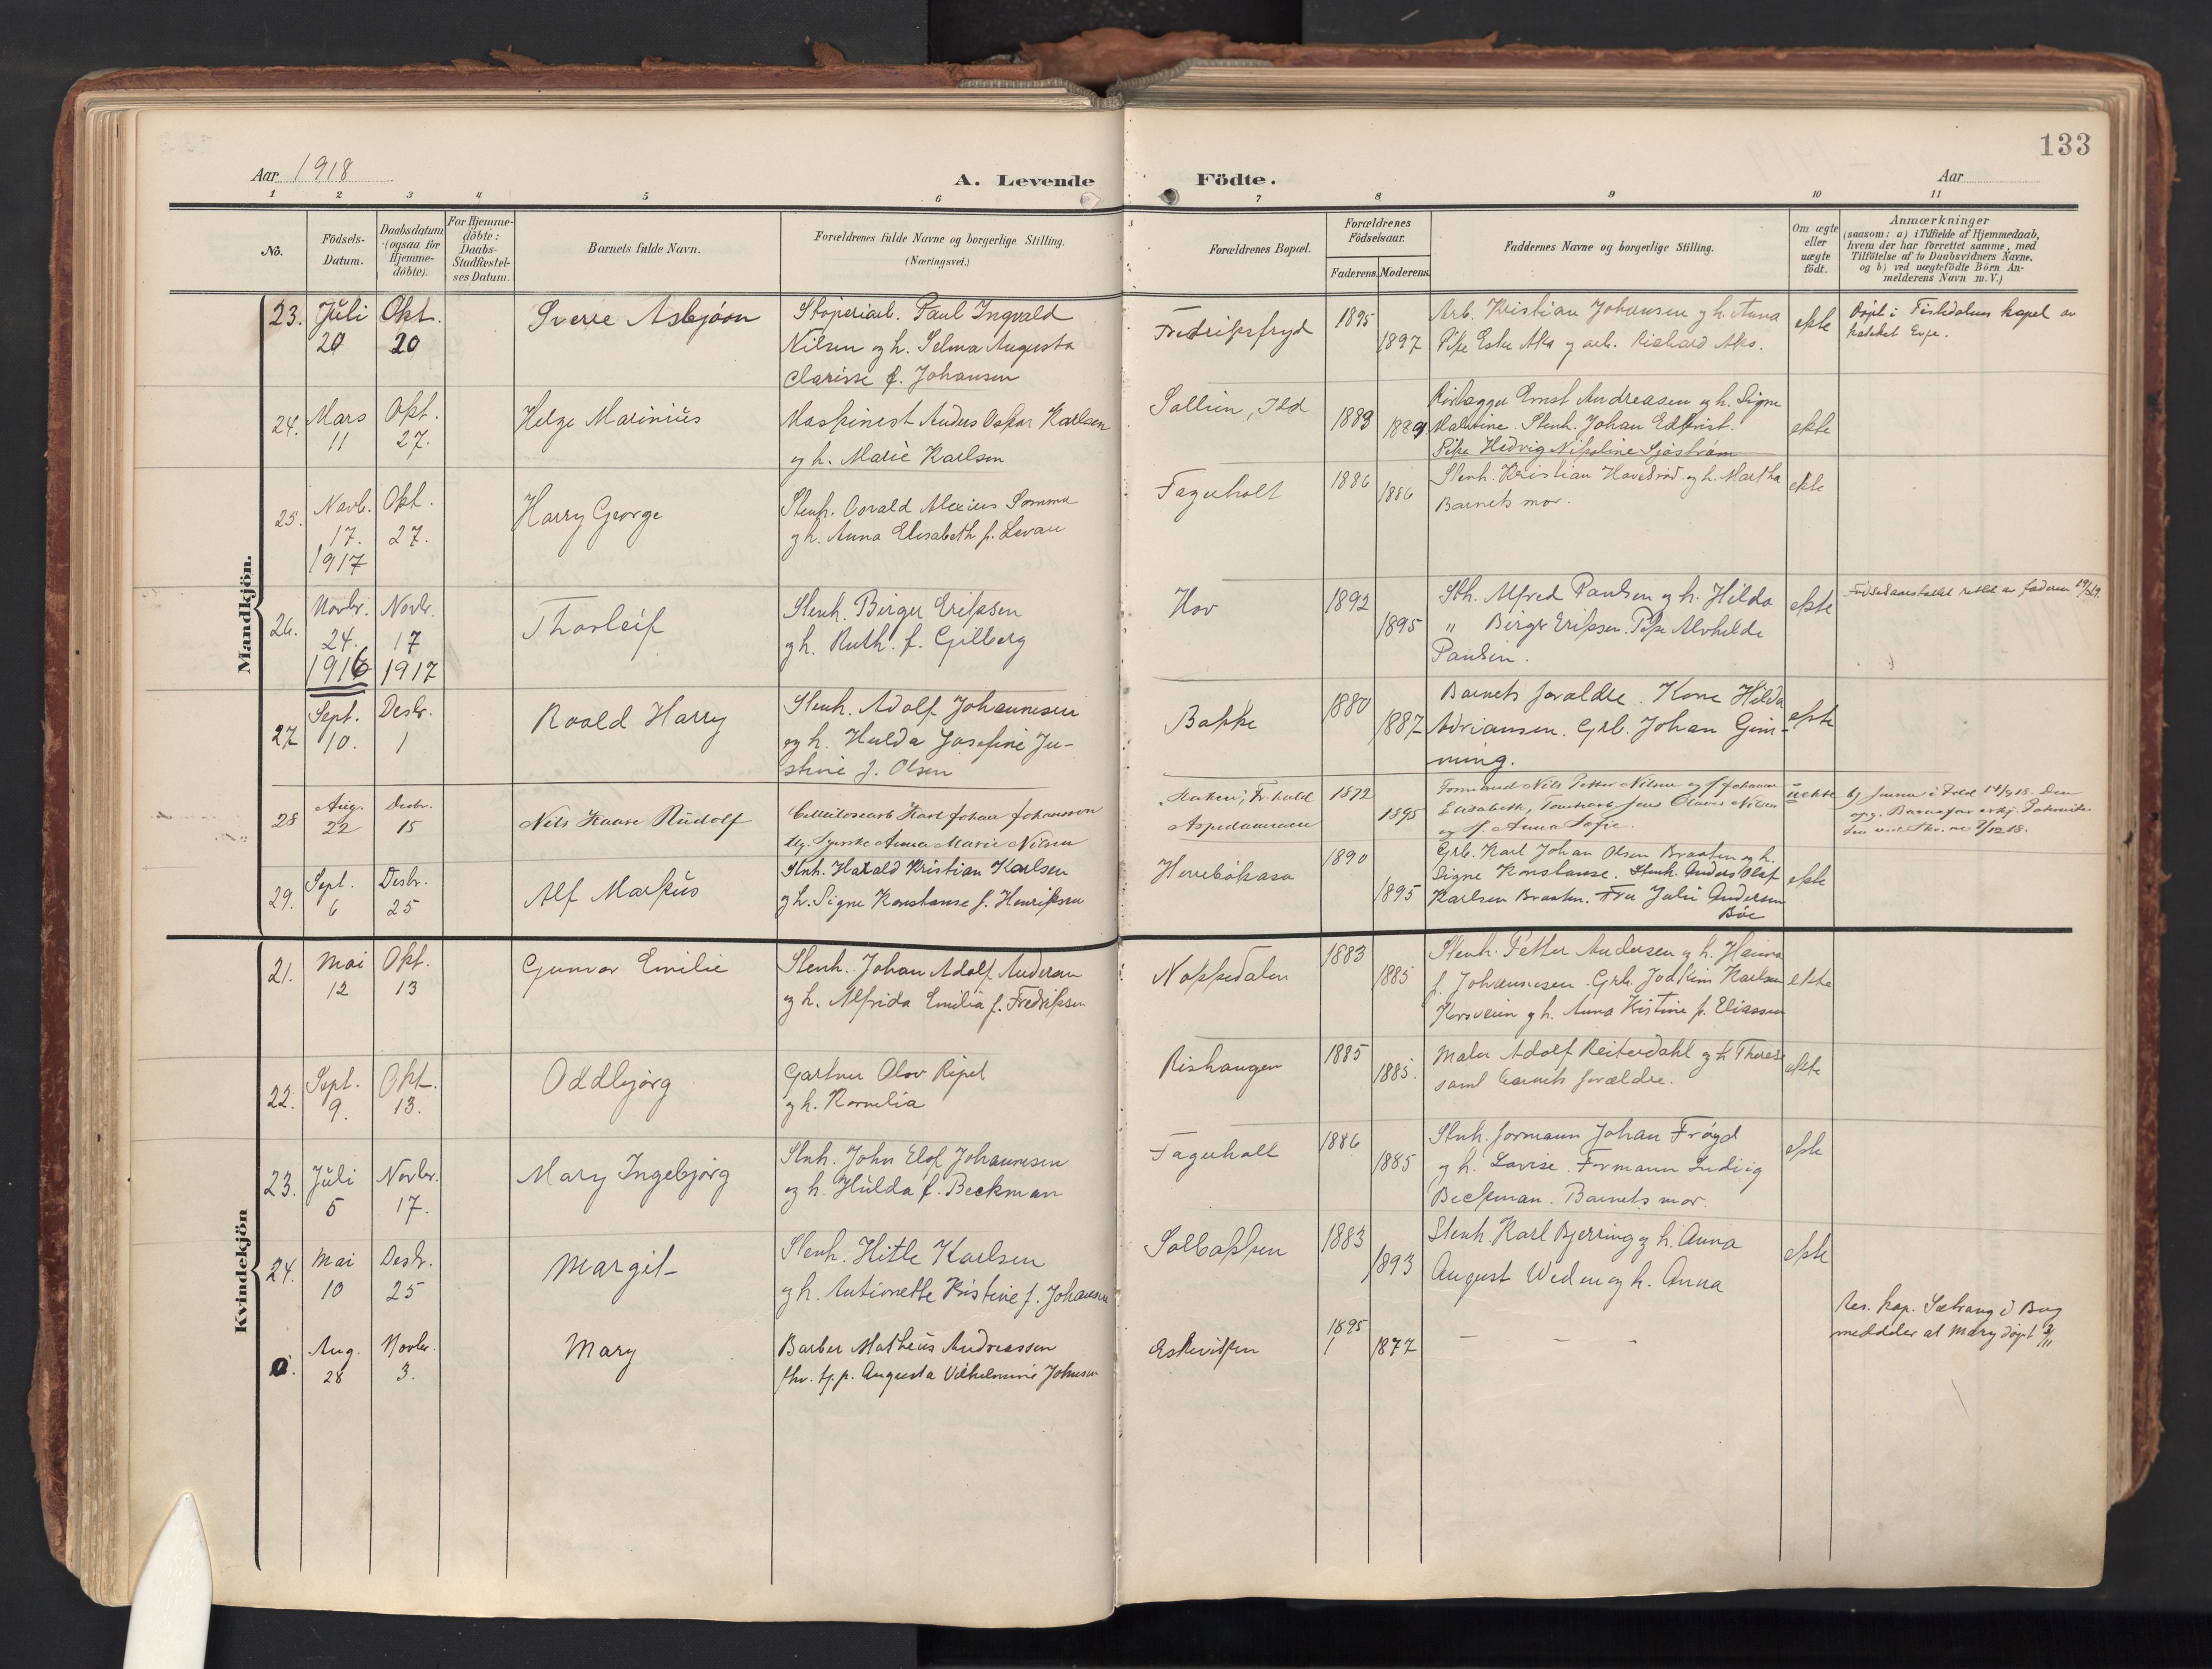 133
Aar 1918
A. Levende Födte.
Aar
1 2 3 4 5 6 7 8 9 10 11
No.
Födsels-Datum.
Daabsdatum (ogsaa for Hjemmedöbte).
For Hjemmedöbte: Daabs-Stadfæstelses Datum.
Barnets fulde Navn.
Forældrenes fulde Navne og borgerlige Stilling.
(Næringsvei.)
Forældrenes Bopæl.
Forældrenes Födselsaar.
Faderens. Moderens.
Faddernes Navne og borgerlige Stilling.
Om ægte eller uægte födt.
Anmærkninger
(saasom: a) i Tilfælde af Hjemmedaab,
hvem der har forrettet samme, med
Tilföielse af to Daabsvidners Navne,
og b) ved uægtefödte Börn An-
melderens Navn m. V.)
Mandkjön.
23. Juli 20 Okt. 20 Sverre Asbjörn
Paul Ingvald
Nilsen og h. Selma Augusta
Clarisse f. Johansen
Fredriksfryd 1895 1897
Arb. Kristian Johansen og h. Anna
Pike Ester Aks og arb. Richard Aks.
ekte
döpt i Tistedalens kapel av
24. Mars 11 Okt. 27. Helge Marinius
Maskinest Anders Oskar Karlsen
og h. Marie Karlsen
1889
Rörlægger Ernst Andreasen og h. Signe
Stenh. Johan
Pike Hedvig Nikoline Sjöström
ekte
25. Novb. 17. 1917 Okt. 27. Harry George
Stenh. Alexius
og h. Anna Elisabeth f.
Fagerholt 1886 1886
Stenh. Kristian og h. Martha
Barnets mor.
ekte
26. Novbr. 24. 1916 Novbr. 17 1917 Thorleif
Stenh. Birger Eriksen
og h. Ruth. f. Gjilberg
Hov 1892 1895
Sth. Alfred Paulsen og h. Hilda
" Birger Eriksen. Pike Alvhilde
Paulsen.
ekte
rettet av faderen
27 Sept. 10. Desbr. 1 Roald Harry
Stenh. Adolf Johannesen
og h. Hulda Josefine Ju-
stine f. Olsen
Bakke 1880 1887
Barnets foraldre. Kone Hilda
Adriansen. Grb. Johan Gim-
ming.
ekte
28 Aug. 22 Desbr. 15 Nils Kaare Rudolf
Cellulosearb Karl Johan Johansson
Anna Marie Nilsen
Aspedammen 1892 1895
Formand Nils Petter Nilsen og h. Johanne
Elisabeth, Jens Olaves Nilsen
og h. Anna Sofie.
uekte
29. Sept. 6 Desbr. 25 Alf Markus
Stnh. Harald Kristian Karlsen
og h. Signe Konstanse f. Henriksen
Herrebökasa 1890 1895
Grb. Karl Johan Olsen Braaten og h.
Signe Konstanse. Stenh. Anders Olaf
Karlsen Braaten. Fru Julie Andersen
Böe
ekte
Kvindekjön
21. Mai 12 Okt. 13 Gunvor Emilie
Stenh. Johan Adolf Andersen
og h. Alfrida Emilia f. Fredriksen
Nokkedalen 1883 1885
Stenh. Petter Andersen og h. Hanna
f. Johannesen. Grb. Joakim Karlsen
Korsveien og h. Anna Kristine f. Eliassen
ekte
22. Sept. 9. Okt. 13. Oddbjörg
Gartner Olav Ripel
og h. Kornelia
Rishaugen 1885 1885.
Maler Adolf Reiterdahl og h Therese
samt barnets forældre.
ekte
23. Juli 5 Novbr. 17. Mary Ingebjörg
Stnh. John Elof Johannesen
og h. Hulda f. Beckman
Fagerholt 1886 1885
Stnh. formann Johan Fröyd
og h. Lovise. Formann Ludvig
Beckman. Barnets mor.
ekte
24. Mai 10 Desbr. 25 Margit
Stenh. Hitle Karlsen
og h. Antionette Kristine f. Johansen
Solbakken 1883 1893
Stenh. Karl Bjerring og h. Anna
August Weden og h. Anna
ekte
0. Aug. 28 Novbr. 3. Mary
Barber Matheus Andreassen
Augusta Vilhelmine Johnsen
Eskeviken 1895 1877
– – –
Res. kap. Sætrang i Berg
meddeler at Mary döpt 3/11